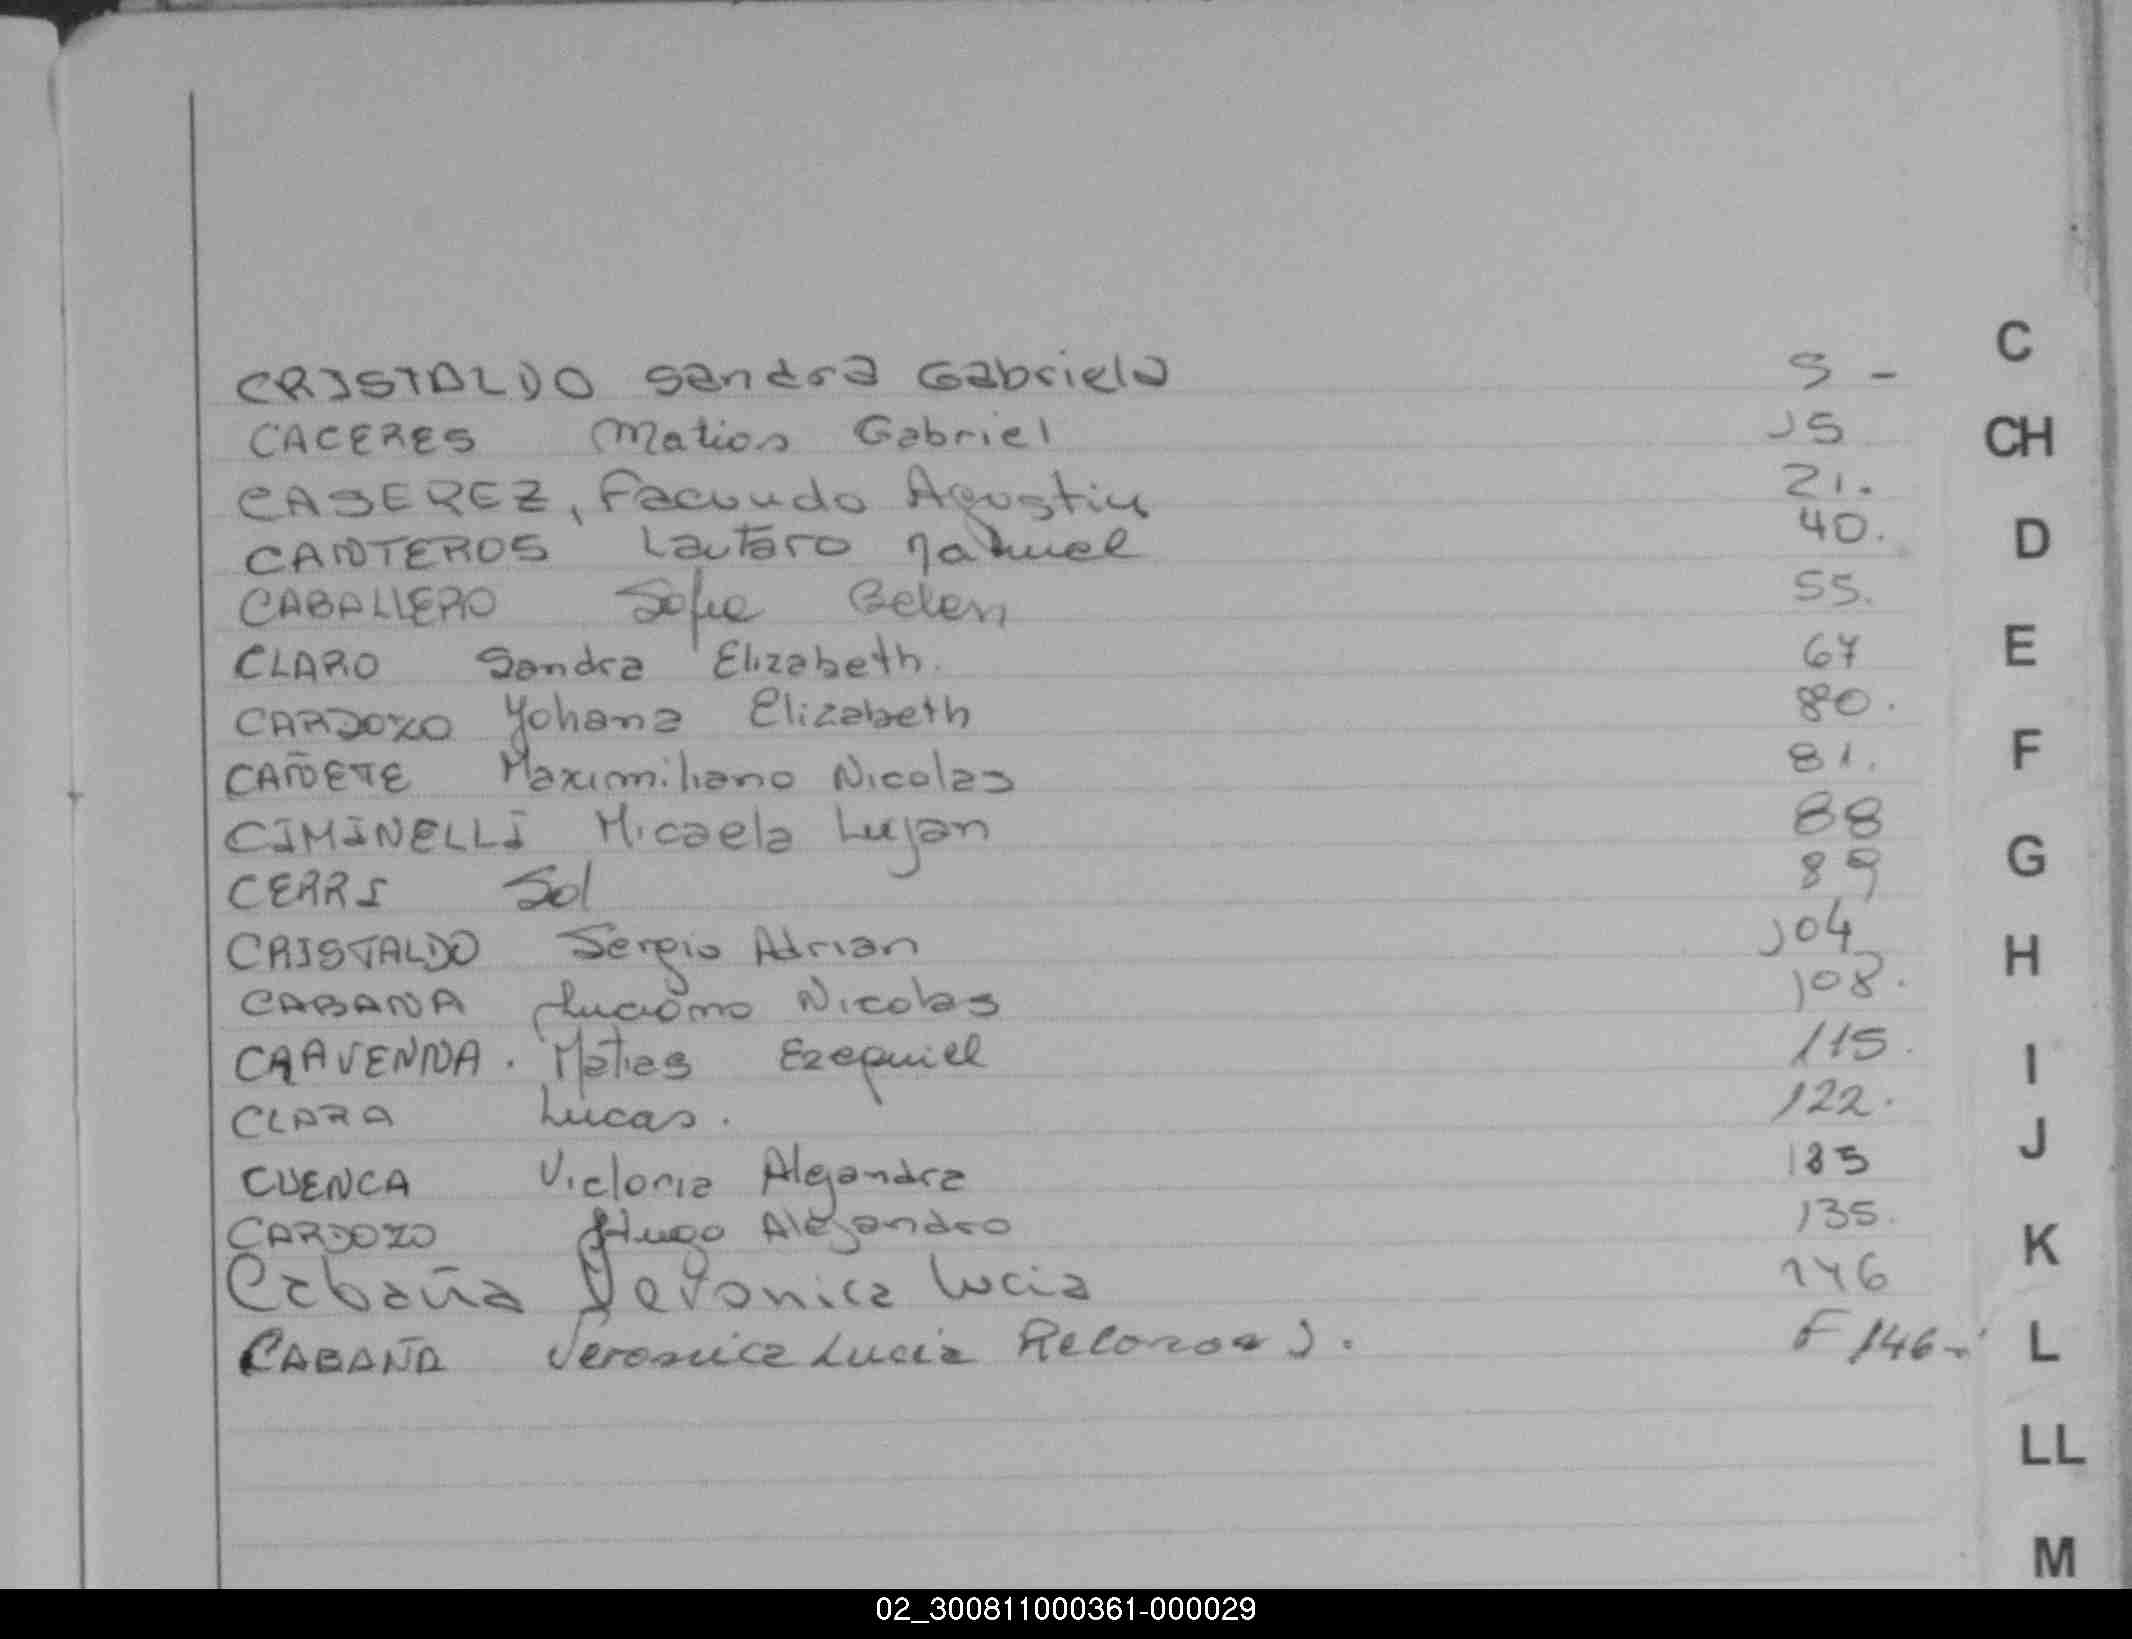 CRISTALDO Sandra Gabriela 5 -
CACERES Matias Gabriel 15
CASEREZ, Facundo Agustin 21.
CANTEROS Lautaro Nahuel 40.
CABALLERO Sofia Belen 55.
CLARO Sandra Elizabeth. 67
CARDOZO Yohana Elizabeth 80.
CAÑETE Maximiliano Nicolas 81.
CIMINELLI Micaela Lujan 88
CERRI Sol 89
CRISTALDO Sergio Adrian 104
CABANA Luciano Nicolas 108.
CRAVENNA. Matias Ezequiel 115.
CLARA Lucas. 122.
CUENCA Victoria Alejandra
CARDOZO Hugo Alejandro 135.
Cabaña Veronica Lucia 146
CABAÑA Veronica Lucia F 146-
C
CH
D
E
F
G
H
I
J
K
L
LL
M
02_300811000361-000029